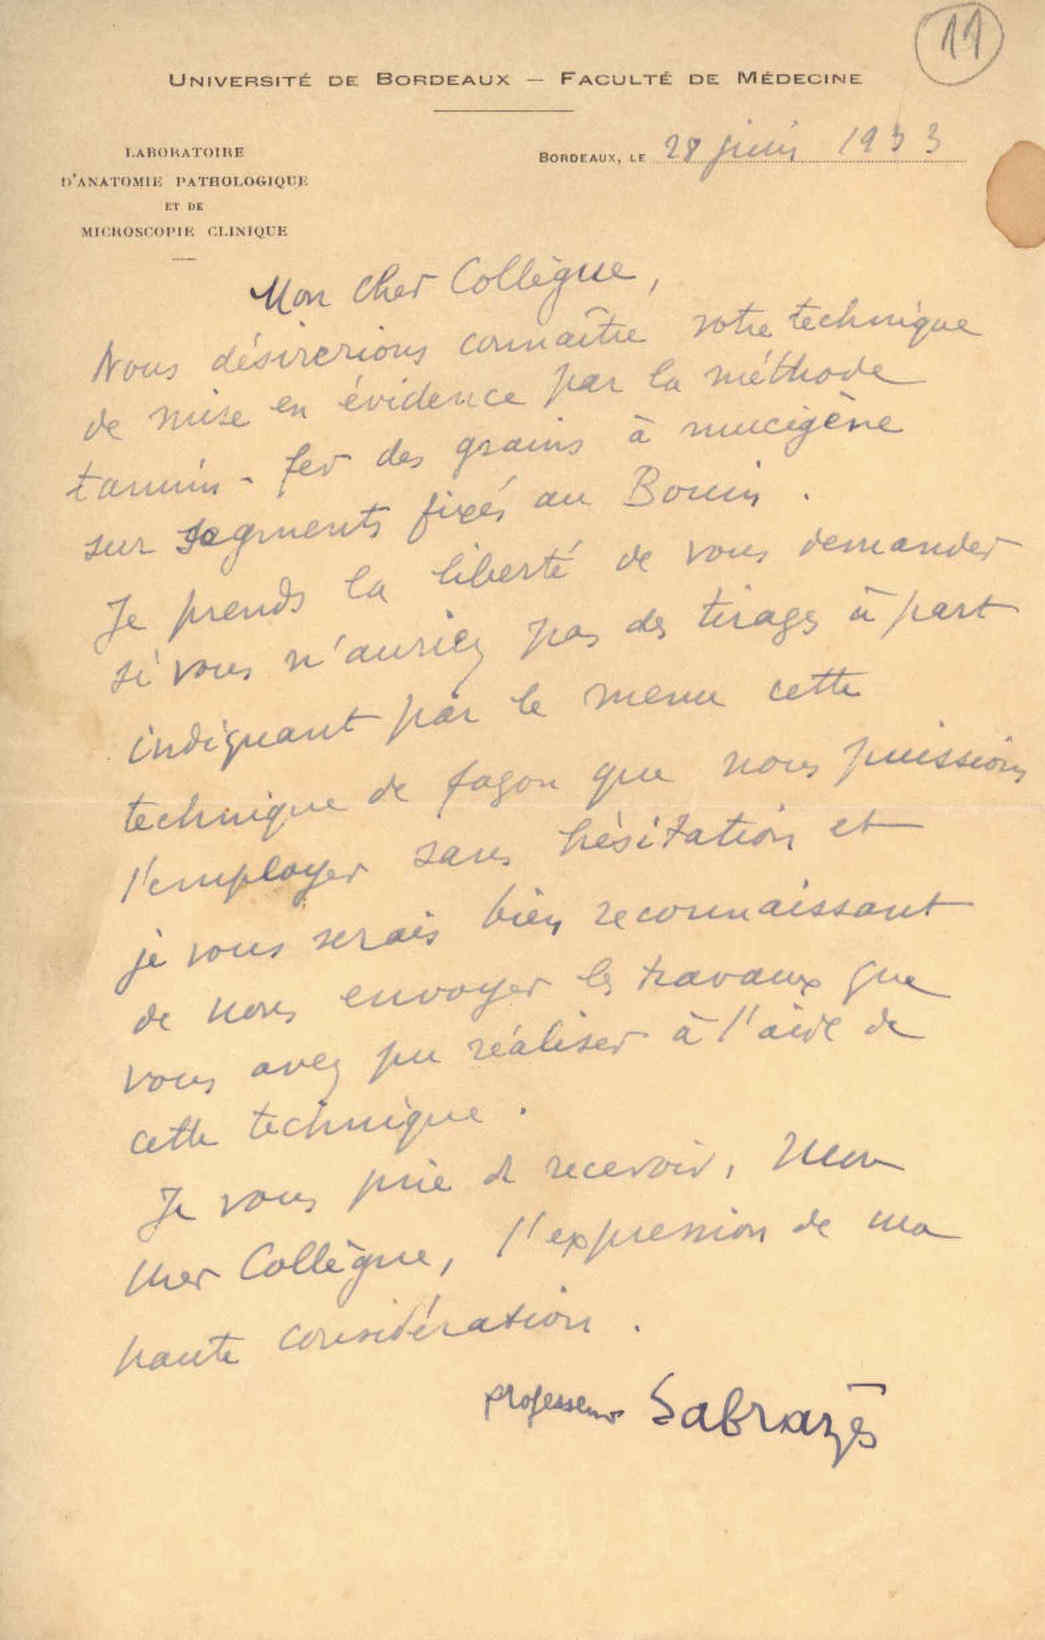 11
UNIVERSITÉ DE BORDEAUX — FACULTÉ DE MÉDECINE
LABORATOIRE
D'ANATOMIE PATHOLOGIQUE
ET DE
MICROSCOPIE CLINIQUE
BORDEAUX, LE 28 juin 1933
Mon cher Collègue,
Nous désirerions connaître votre technique
de mise en évidence par la méthode
tannin-fer des grains à mucigène
sur segments fixés au Bouin.
Je prends la liberté de vous demander
si vous n'auriez pas des tirages à part
indiquant par le menu cette
technique de façon que nous puissions
l'employer sans hésitation et
je vous serais bien reconnaissant
de nous envoyer les travaux que
vous avez pu réaliser à l'aide de
cette technique.
Je vous prie de recevoir, Mon
cher Collègue, l'expression de ma
haute considération.
professeur Sabrazès